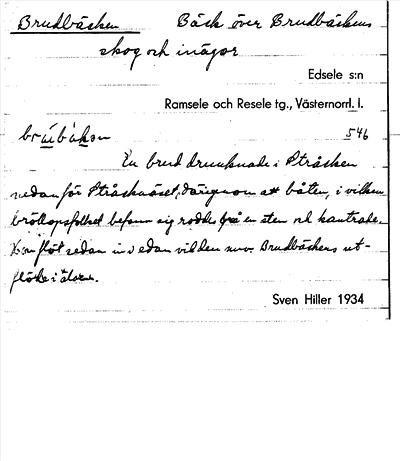 Brudbäcken Bäck över Brudbäckens
skog och inägor
Edsele s:n
Ramsele och Resele tg., Västernorrl. l.
546
En brud drunknade i Stråsken
nedanför Stråsknäset, därigenom att båten, i vilken
bröllopsfolket befann sig rodde på en sten och kantrade.
Hon flöt sedan in vid den nuv. Brudbäckens ut-
flöde i älven.
Sven Hiller 1934